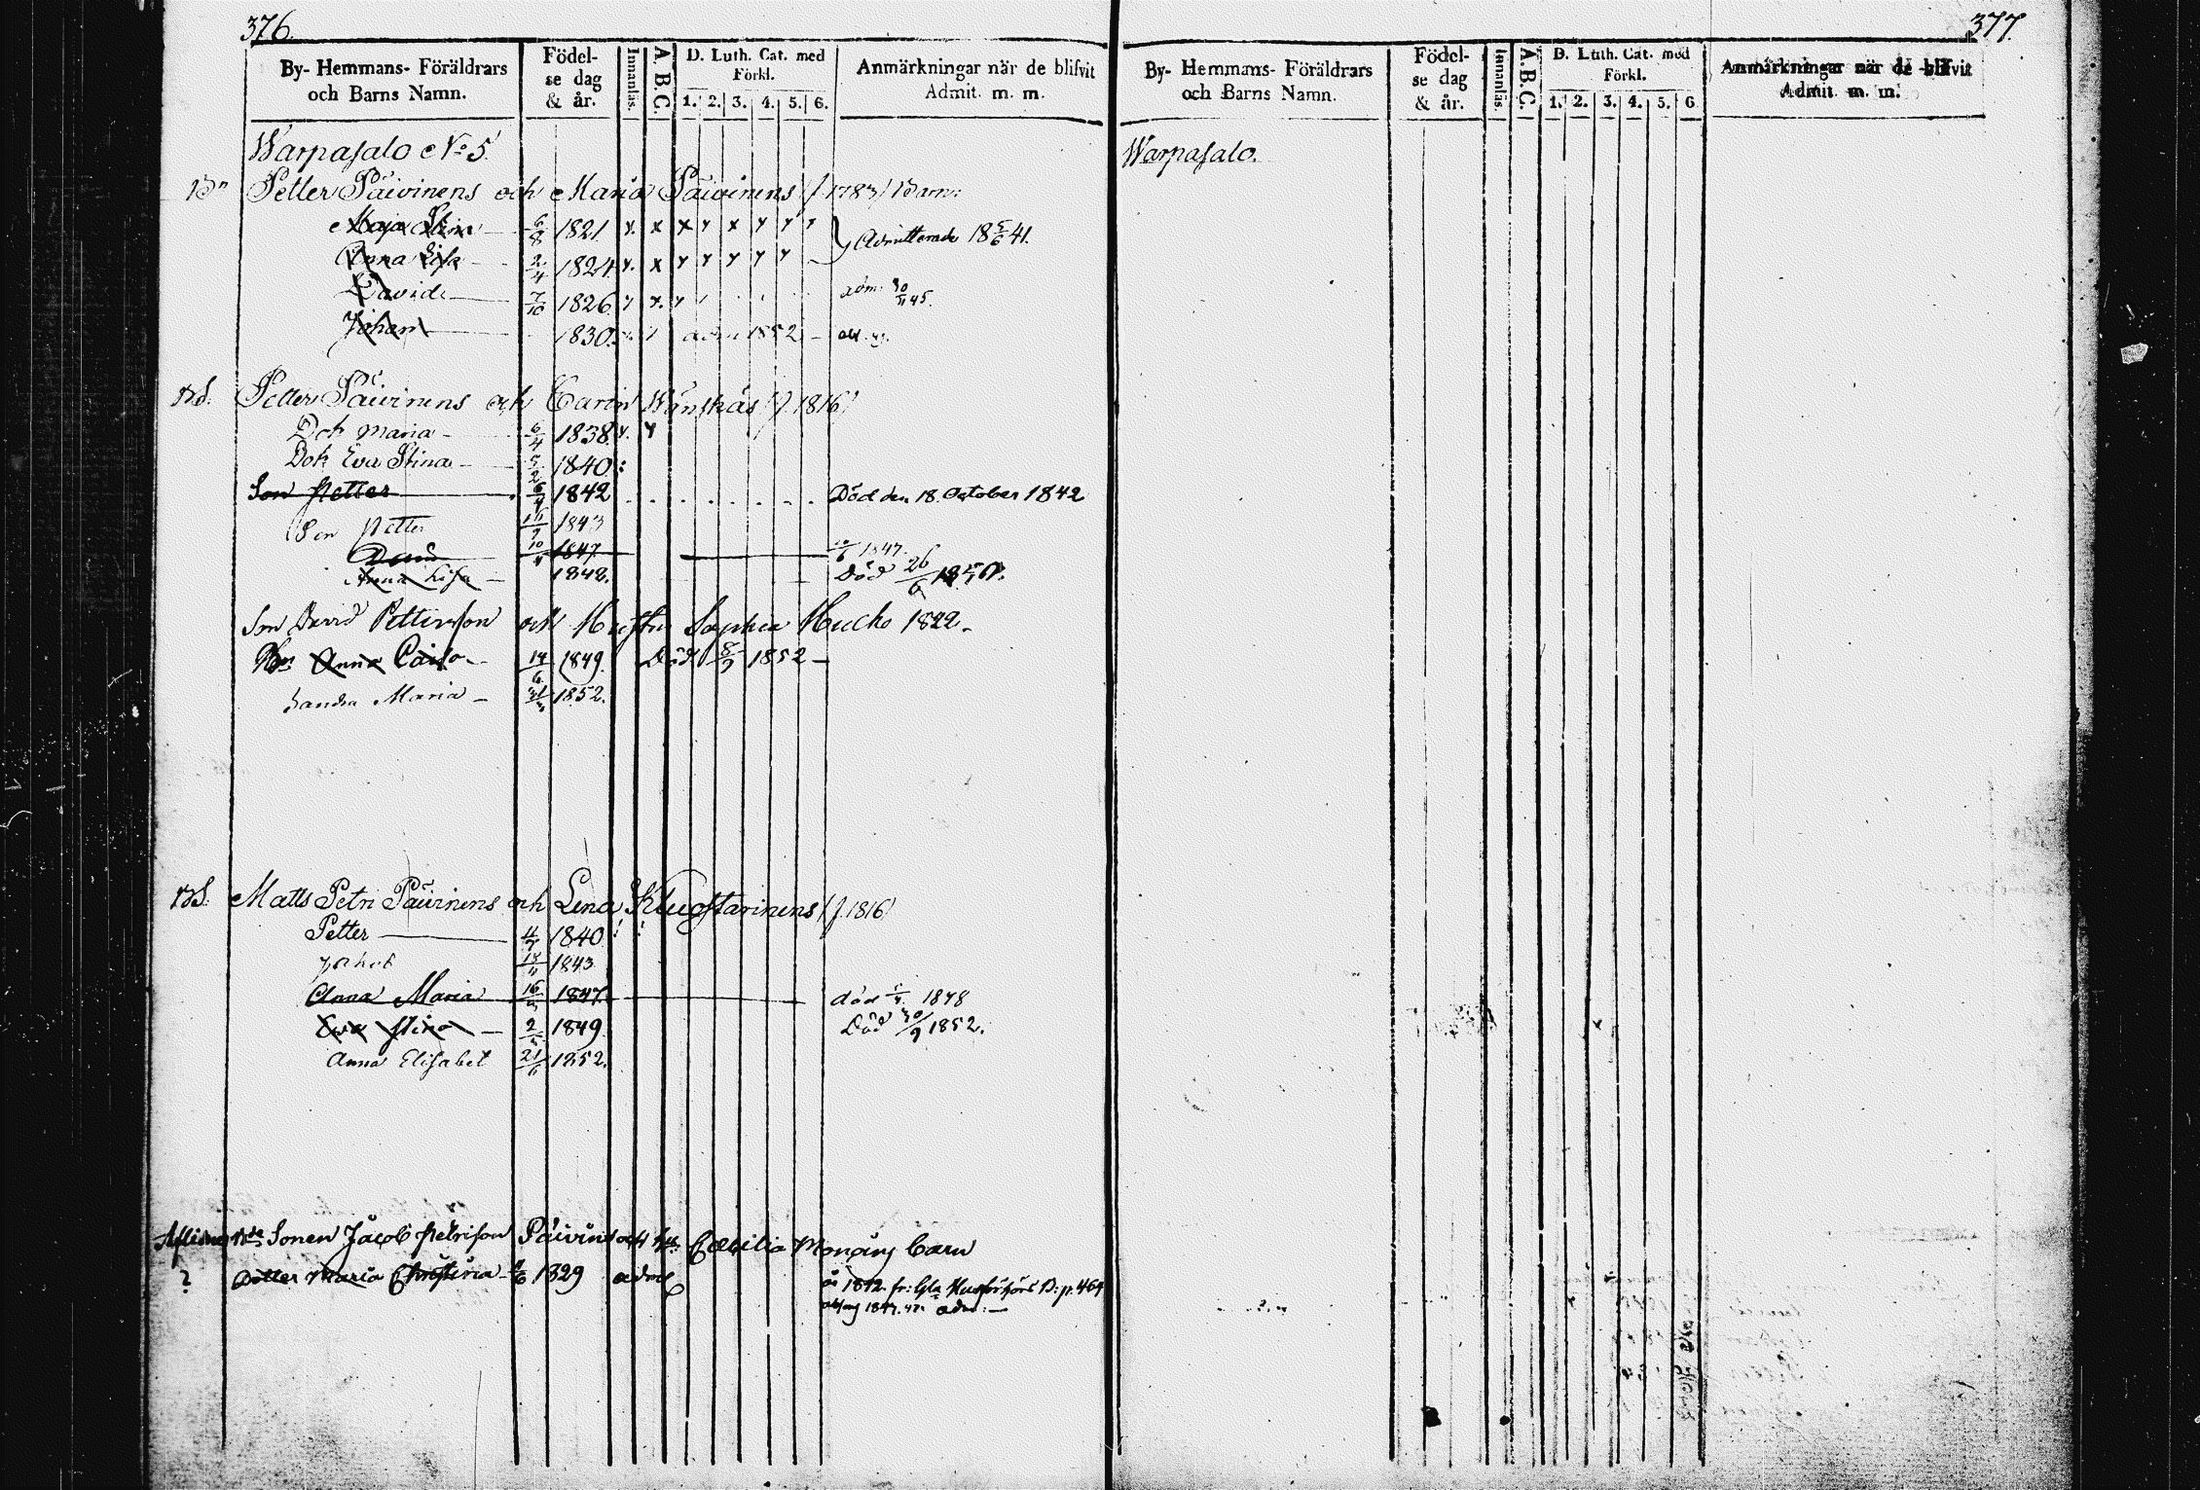 376.
By- Hemmans- Föräldrars och Barns Namn.
Födel- se dag & år.
Innanläs.
A. B. C.
D. Luth. Cat. med Förkl.
1. 2. 3. 4. 5. 6.
Anmärkningar när de blifvit Admit. m. m.
Warpasalo No 5.
Bn Petter Päivinens och Maria Päivinens (f. 1783) Barn:
Maja Stina 6/8 1821. Admitterade 18 5/6 41.
Anna Lisa 2/4 1824.
David 7/10 1826 adm. 45.
Johan 1830. adm 1852
BS. Petter Päivinens och Carin Wänskäs (f. 1816)
Dot Maria 6/4 1838
Dot Eva Stina 5/2 1840
Son Petter 6/4 1842 Död den 18. October 1842
Son Petter 1843
David 10/4 1847. 1847.
Anna Lisa 1848. Död 26/6
Son David Petterson och Hustru Sophia Hucko 1822
Anna Caisa 14/6 1849. Död 1852
Sandra Maria 1852.
BS. Matts Petri Päivinens och Lena (f. 1816)
Petter 4/7 1840
Jakob 1843
Anna Maria 16 1847 död 1848
Eva Stina 2 1849. Död 30/9 1852.
Anna Elisabet 21 1852.
Aflidne Bde Sonen Jacob Petrison och hu Cæcilia barn
? Dotter Maria Christina 1829
år 1842. fr: p. 464
1847. adm:
377.
By- Hemmans- Föräldrars och Barns Namn.
Födel- se dag & år.
Innanläs.
A. B. C.
D. Luth. Cat. med Förkl.
1. 2. 3. 4. 5. 6
Anmärkningar när de blifvit Admit. m. m.
Warpasalo.